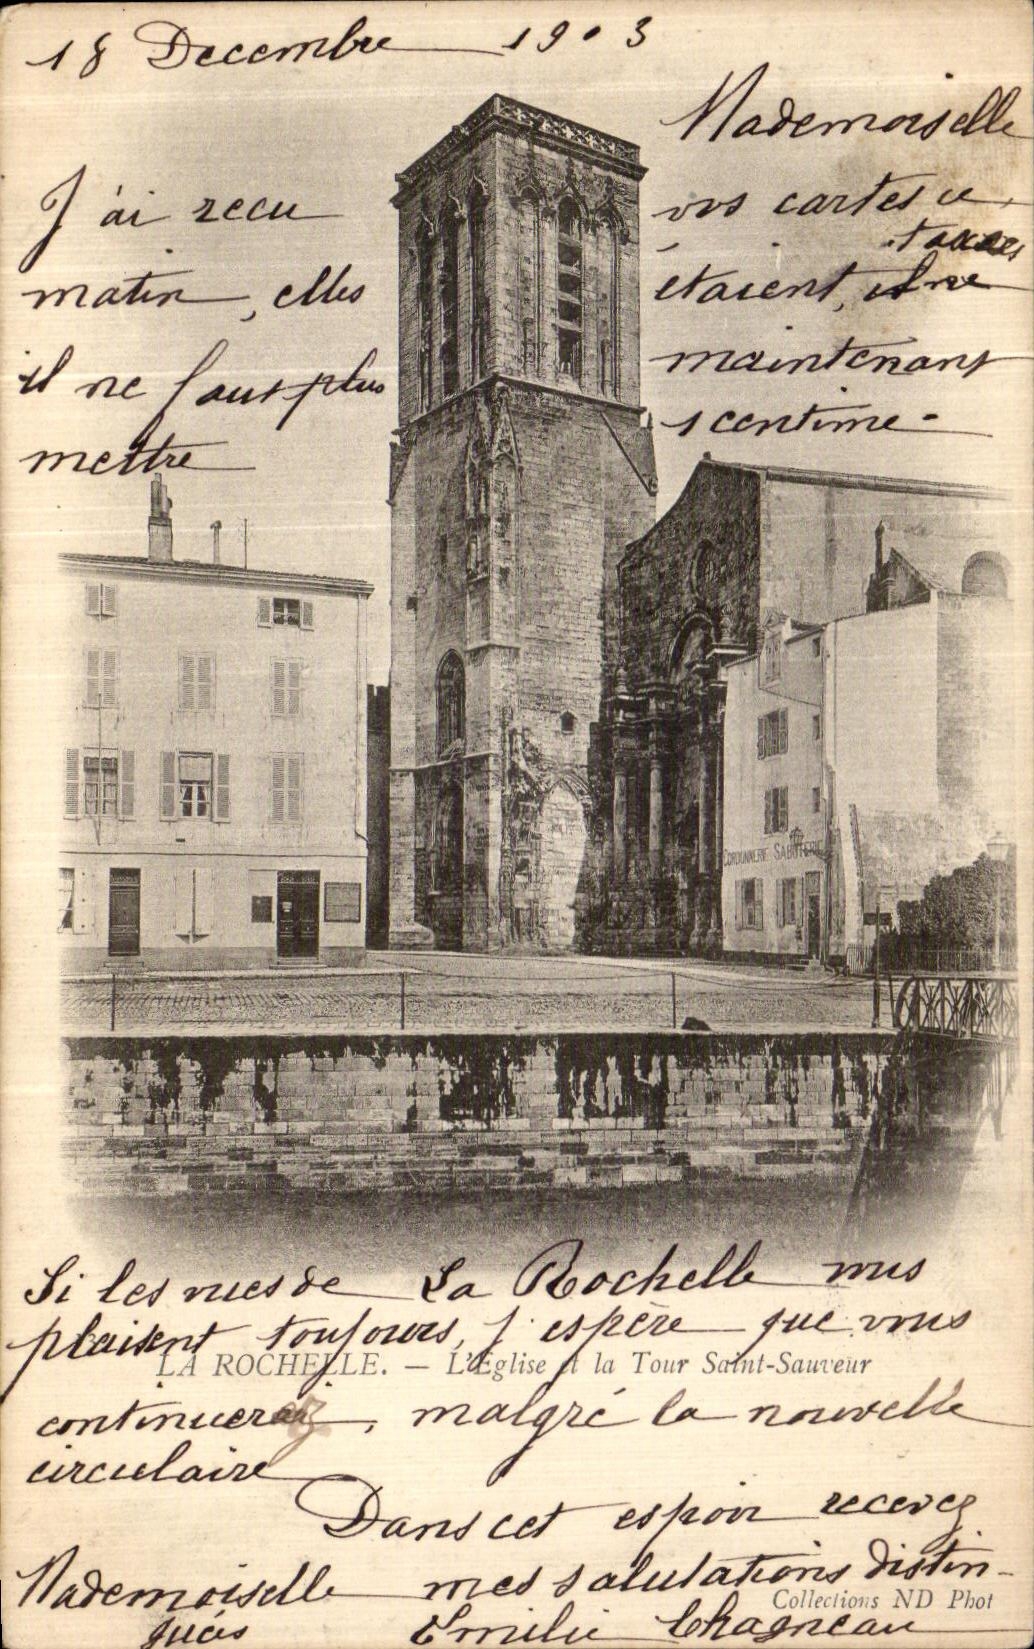 18 Decembre 1903
Mademoiselle
J'ai recu vos cartes ce
matin, elles étaient taxées
il ne faut plus maintenant
mettre 1 centime -
CORDONNERIE SABOTERIE
Si les vues de La Rochelle vous
plaisent toujours, j'espère que vous
LA ROCHELLE. — L'Église et la Tour Saint-Sauveur
continuerez, malgré la nouvelle
circulaire
Dans cet espoir recevez
Mademoiselle mes salutations distin-
Collections ND Phot
guées Emilie Chagneau